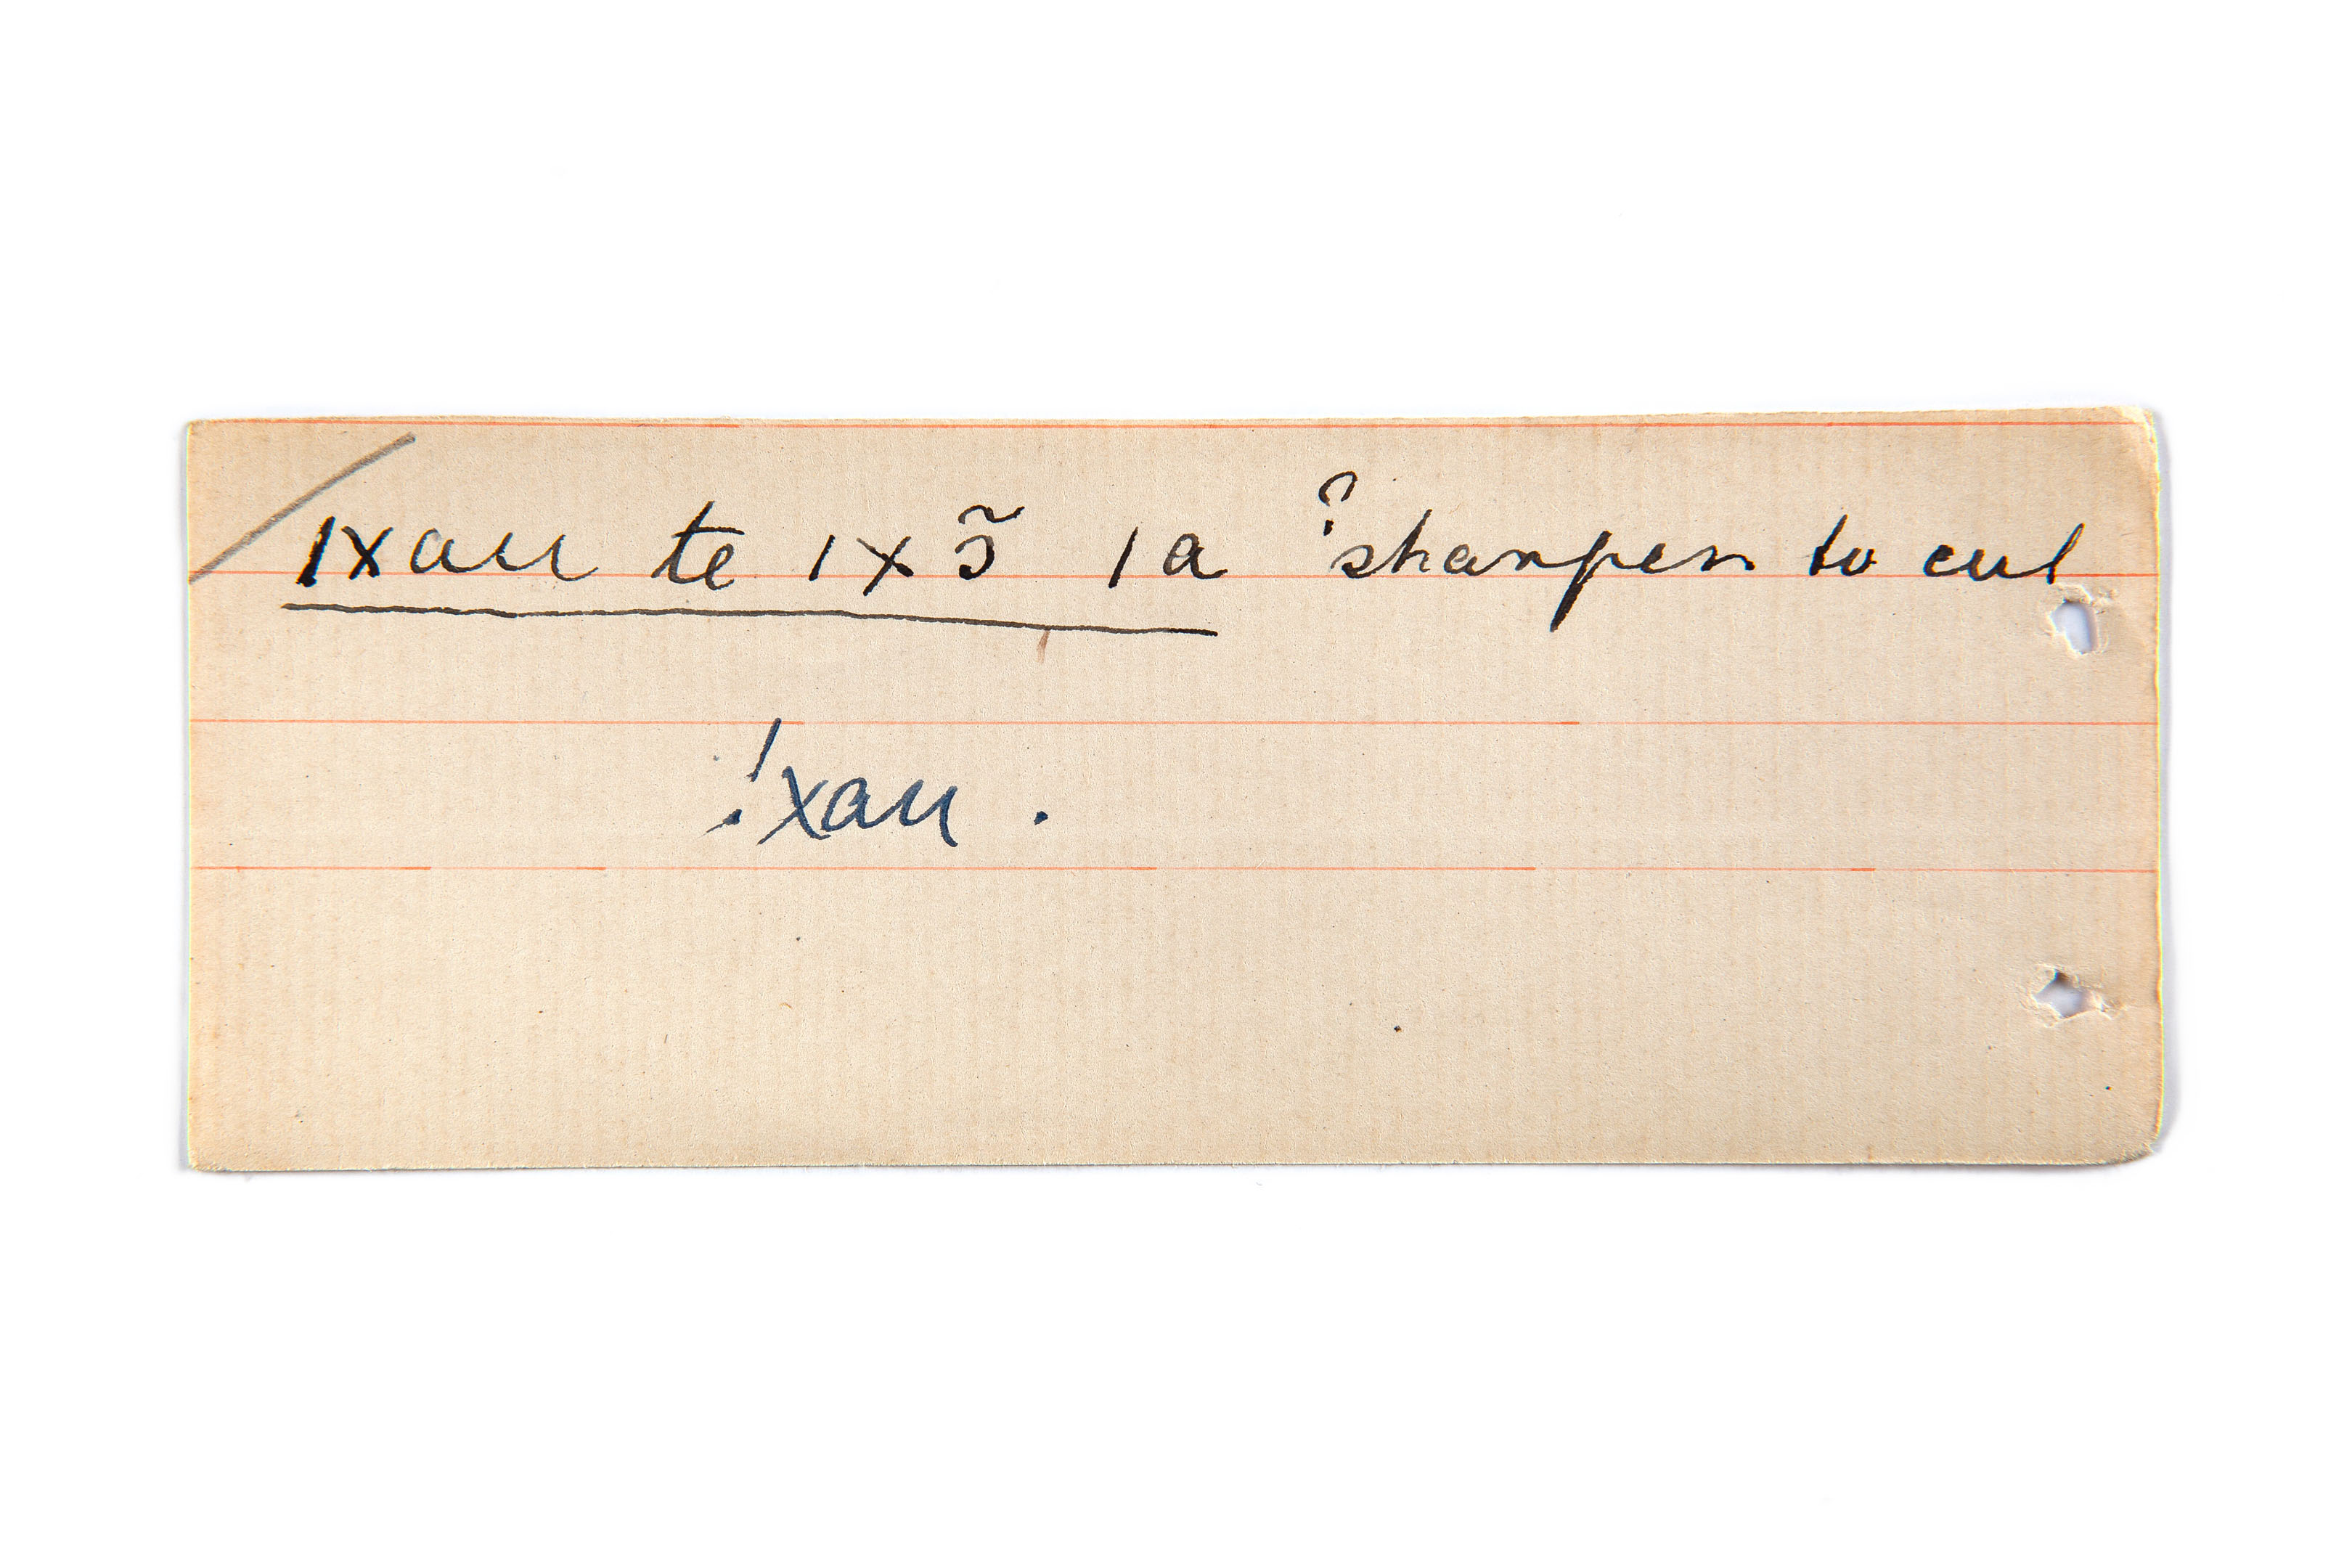 ǀxau te ǀxɔ̃ ǀa ? sharpen to cut
!xau .